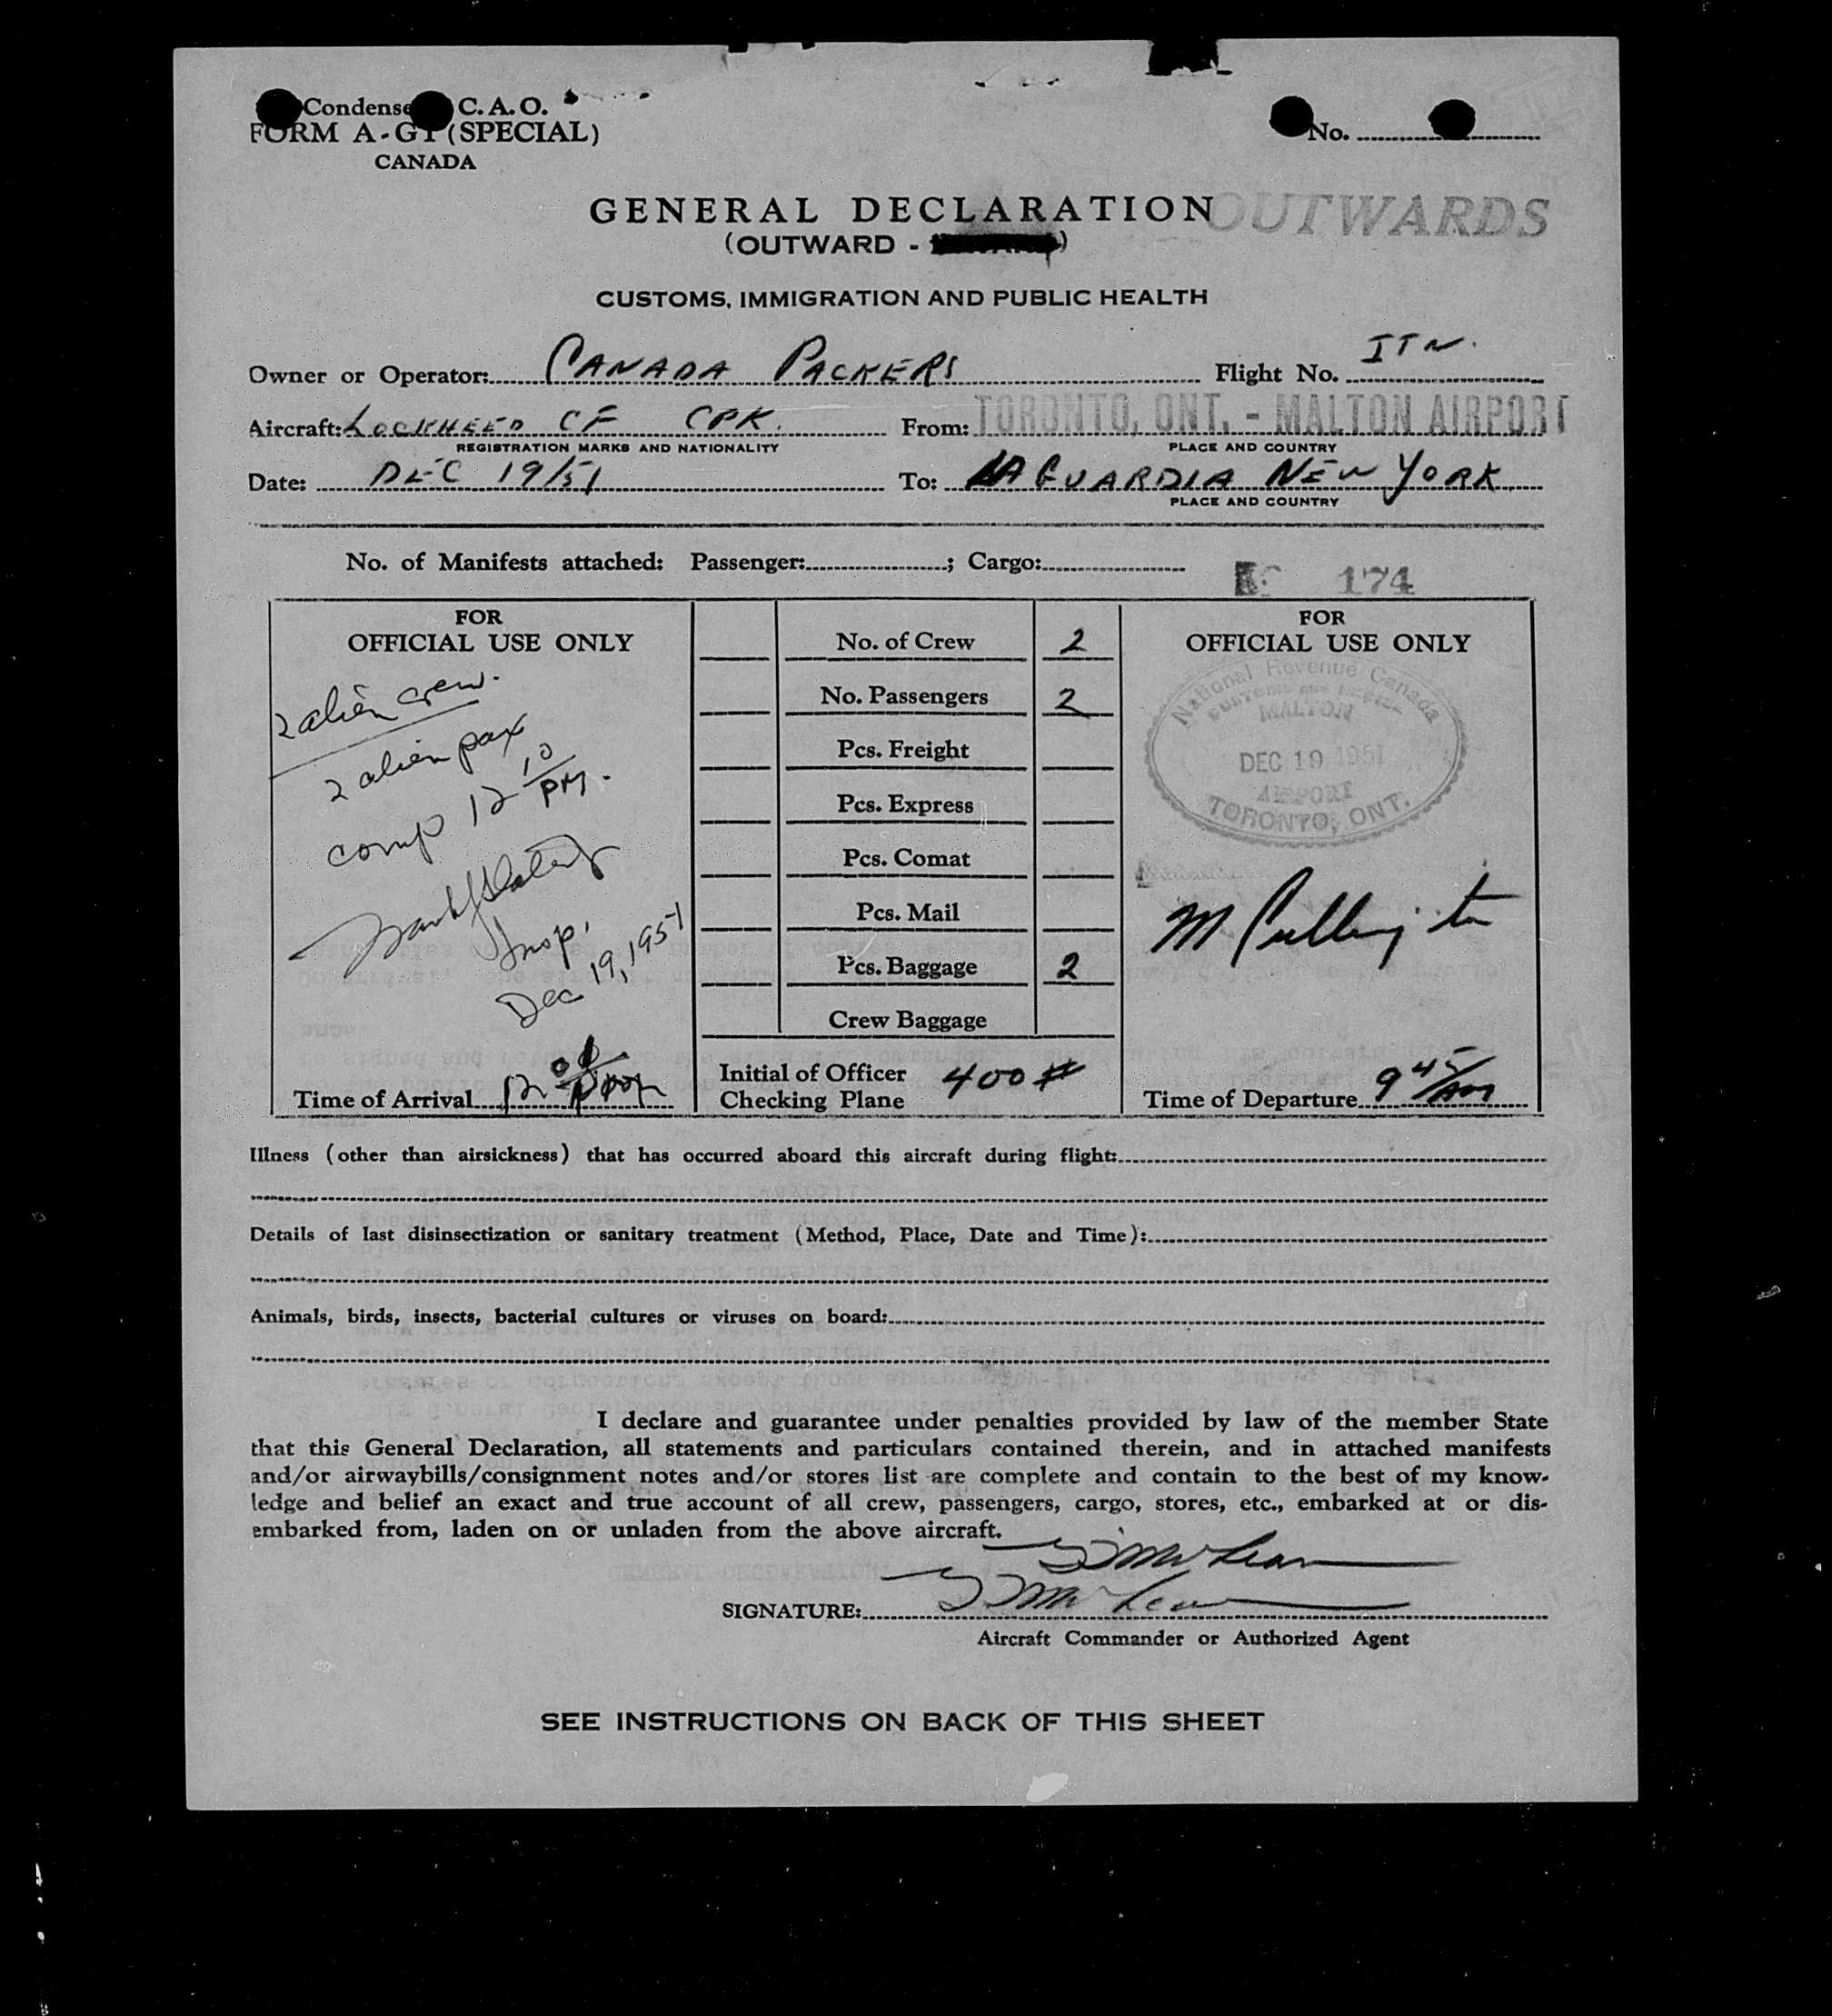 Condense C.A.O.
FORM A-G1 (SPECIAL)
CANADA
No.
GENERAL DECLARATION
OUTWARDS
(OUTWARD - )
CUSTOMS, IMMIGRATION AND PUBLIC HEALTH
Owner or Operator: CANADA PACKERS Flight No. ITN.
Aircraft: LOCKHEED CF CPK. From: TORONTO, ONT. - MALTON AIRPORT
REGISTRATION MARKS AND NATIONALITY PLACE AND COUNTRY
Date: DEC 19/51 To: LA GUARDIA NEW YORK
PLACE AND COUNTRY
No. of Manifests attached: Passenger: ; Cargo:
174
FOR
OFFICIAL USE ONLY
2 alien crew.
2 alien pax
comp 12 10/PM.
Insp.
Dec 19, 1951
Time of Arrival 12 00/noon
No. of Crew 2
No. Passengers 2
Pcs. Freight
Pcs. Express
Pcs. Comat
Pcs. Mail
Pcs. Baggage 2
Crew Baggage
Initial of Officer 400 #
Checking Plane
FOR
OFFICIAL USE ONLY
National Revenue Canada
CUSTOMS AND EXCISE
MALTON
DEC 19 1951
AIRPORT
TORONTO, ONT.
Time of Departure 9 45/AM
Illness (other than airsickness) that has occurred aboard this aircraft during flight:
Details of last disinsectization or sanitary treatment (Method, Place, Date and Time):
Animals, birds, insects, bacterial cultures or viruses on board:
I declare and guarantee under penalties provided by law of the member State
that this General Declaration, all statements and particulars contained therein, and in attached manifests
and/or airwaybills/consignment notes and/or stores list are complete and contain to the best of my know-
ledge and belief an exact and true account of all crew, passengers, cargo, stores, etc., embarked at or dis-
embarked from, laden on or unladen from the above aircraft.
SIGNATURE:
Aircraft Commander or Authorized Agent
SEE INSTRUCTIONS ON BACK OF THIS SHEET